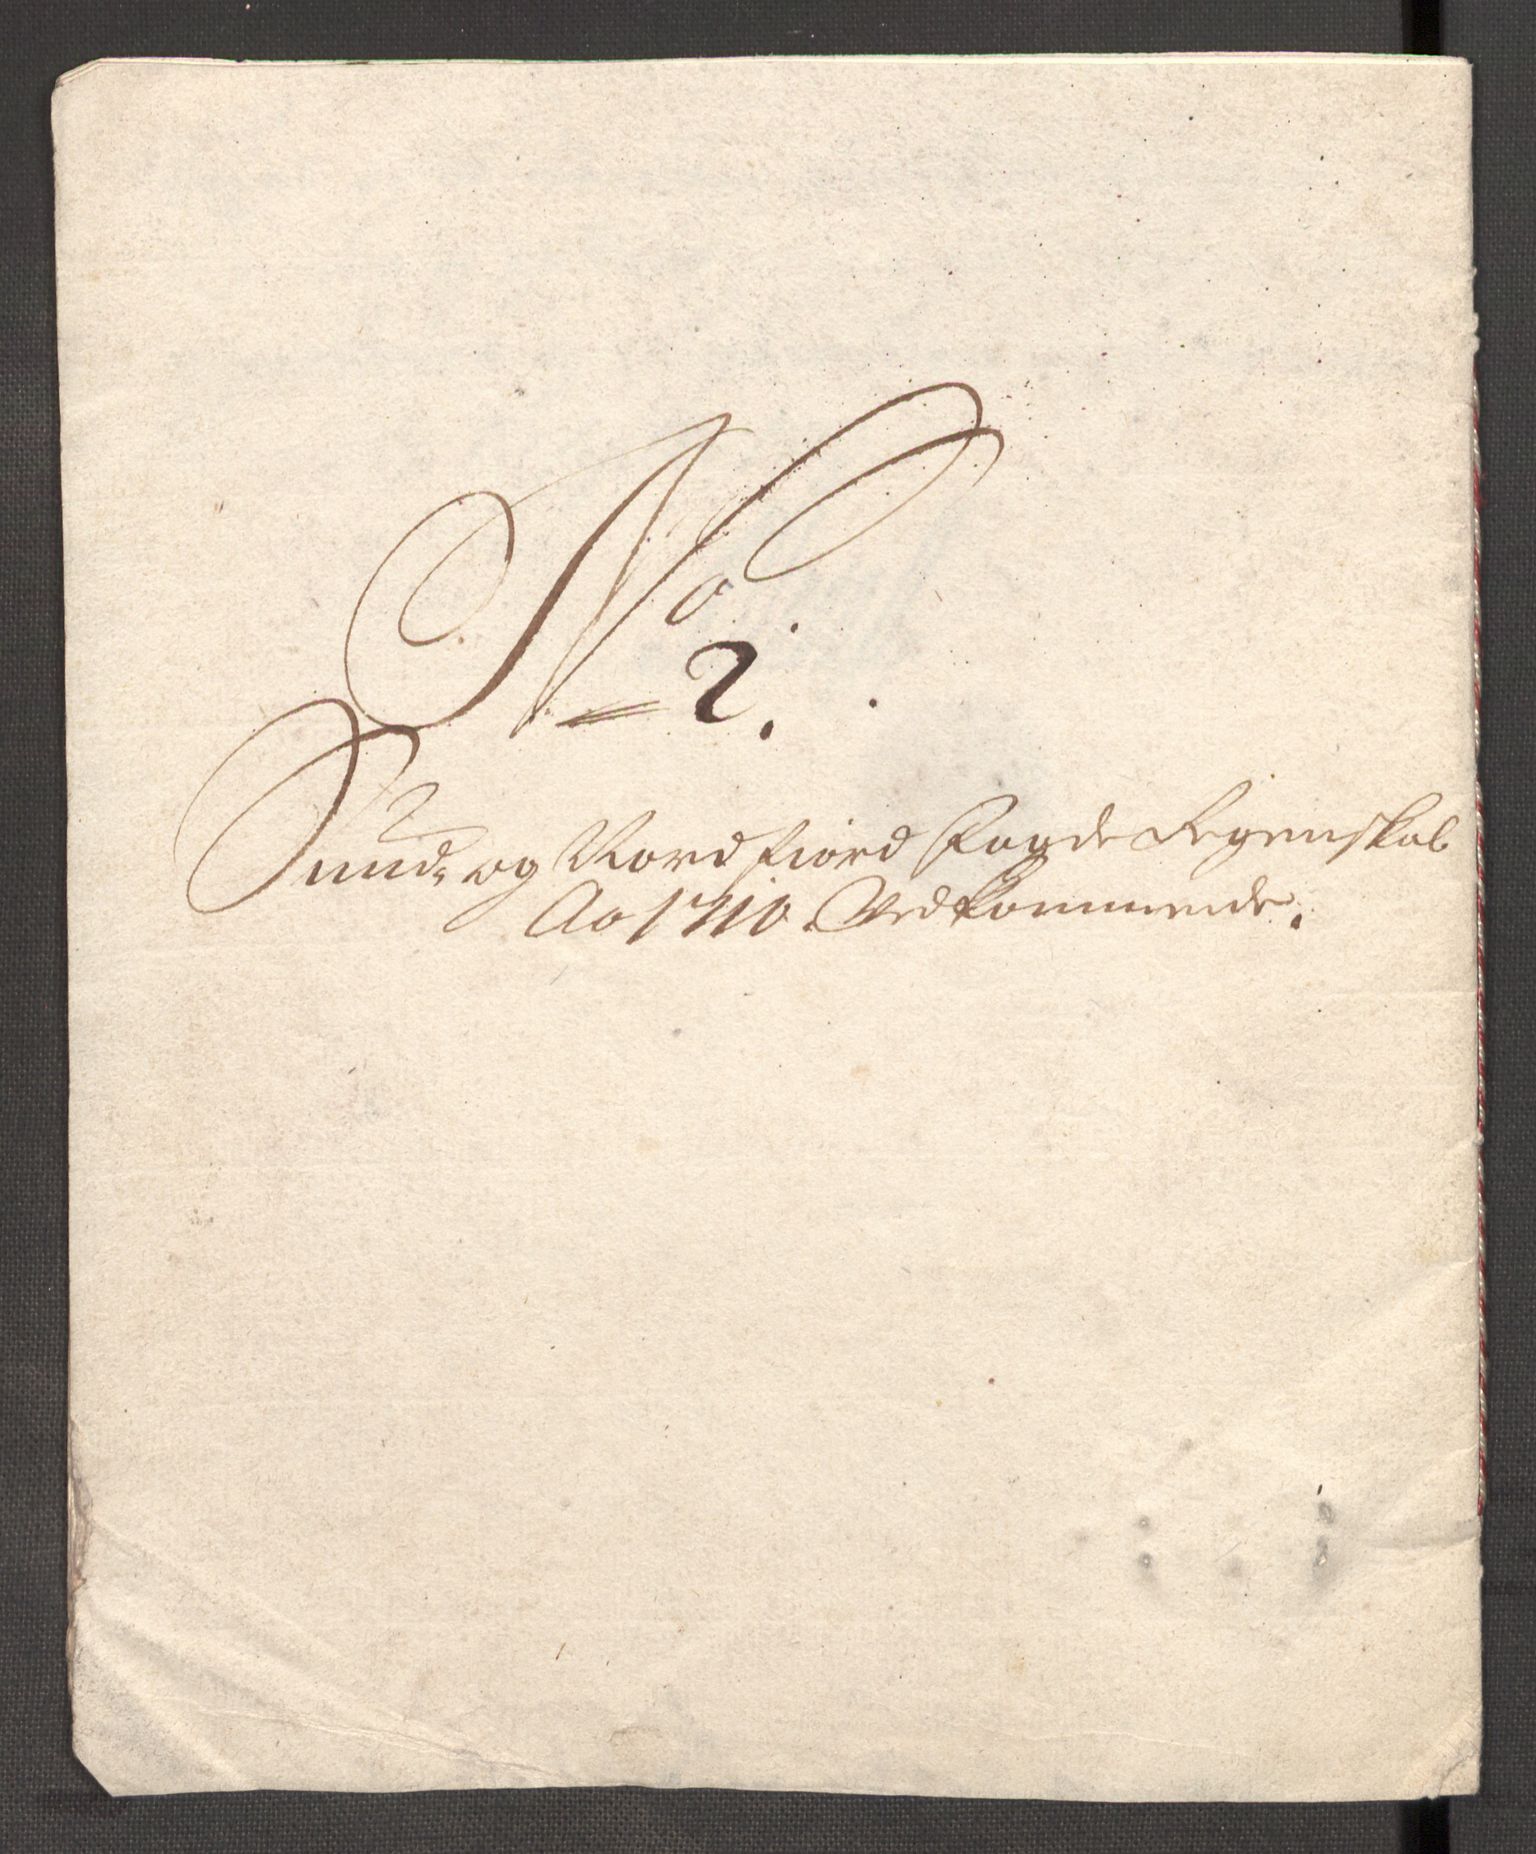 No
2.
Sund- og Nordfiord Fogde Regenskab
Ao 1710 Vedkommende.